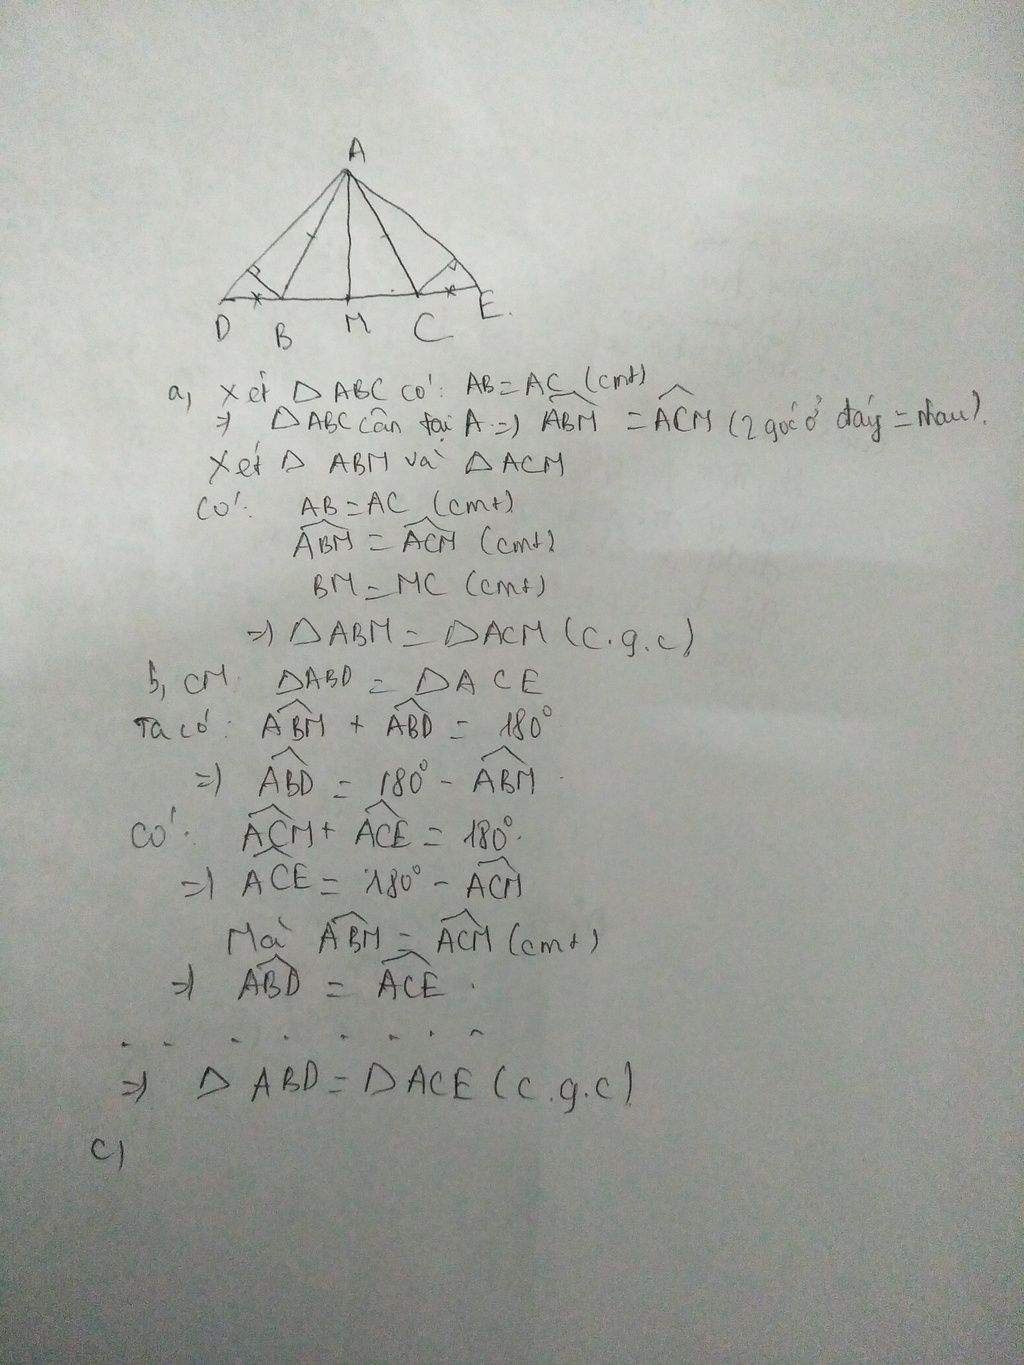 A
D B M C E.
a, Xét △ABC có: AB = AC (cmt)
=> △ABC cân tại A => \widehat{ABM} = \widehat{ACM} (2 góc ở đáy = nhau).
Xét △ ABM và △ACM
Có: AB = AC (cmt)
\widehat{ABM} = \widehat{ACM} (cmt)
BM = MC (cmt)
=> △ABM = △ACM (c.g.c)
b, CM △ABD = △ACE
Ta có: \widehat{ABM} + \widehat{ABD} = 180°
=> \widehat{ABD} = 180° - \widehat{ABM}
Có: \widehat{ACM} + \widehat{ACE} = 180°.
=> \widehat{ACE} = 180° - \widehat{ACM}
Mà \widehat{ABM} = \widehat{ACM} (cmt)
=> \widehat{ABD} = \widehat{ACE}.
. . . . . . . .
=> △ ABD = △ACE (c.g.c)
c)